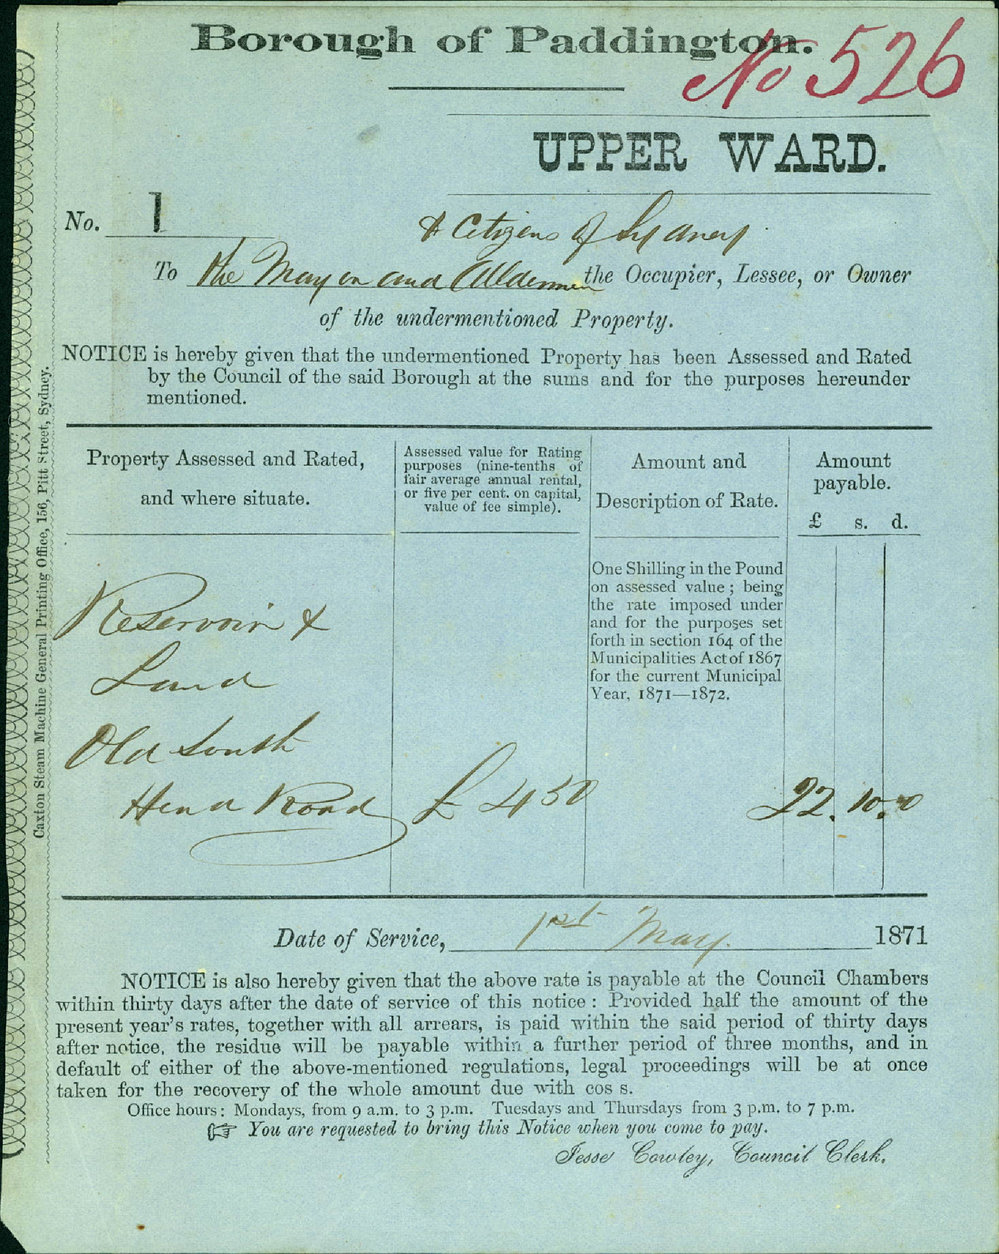 Borough of Paddington.
No 526
UPPER WARD.
No. 1
& Citizens of Sydney
To the Mayor and Aldermen the Occupier, Lessee, or Owner
of the undermentioned Property.
NOTICE is hereby given that the undermentioned Property has been Assessed and Rated
by the Council of the said Borough at the sums and for the purposes hereunder
mentioned.
Property Assessed and Rated,
and where situate.
Assessed value for Rating
purposes (nine-tenths of
fair average annual rental,
or five per cent. on capital,
value of fee simple).
Amount and
Description of Rate.
Amount
payable.
£ s. d.
One Shilling in the Pound
on assessed value; being
the rate imposed under
and for the purposes set
forth in section 164 of the
Municipalities Act of 1867
for the current Municipal
Year, 1871—1872.
Reservoir &
Land
Old South
Head Road £ 450 22.10.0
Date of Service, 1st May. 1871
NOTICE is also hereby given that the above rate is payable at the Council Chambers
within thirty days after the date of service of this notice: Provided half the amount of the
present year's rates, together with all arrears, is paid within the said period of thirty days
after notice, the residue will be payable within a further period of three months, and in
default of either of the above-mentioned regulations, legal proceedings will be at once
taken for the recovery of the whole amount due with cos s.
Office hours: Mondays, from 9 a.m. to 3 p.m. Tuesdays and Thursdays from 3 p.m. to 7 p.m.
☞ You are requested to bring this Notice when you come to pay.
Jesse Cowley, Council Clerk.
Caxton Steam Machine General Printing Office, 156, Pitt Street, Sydney.